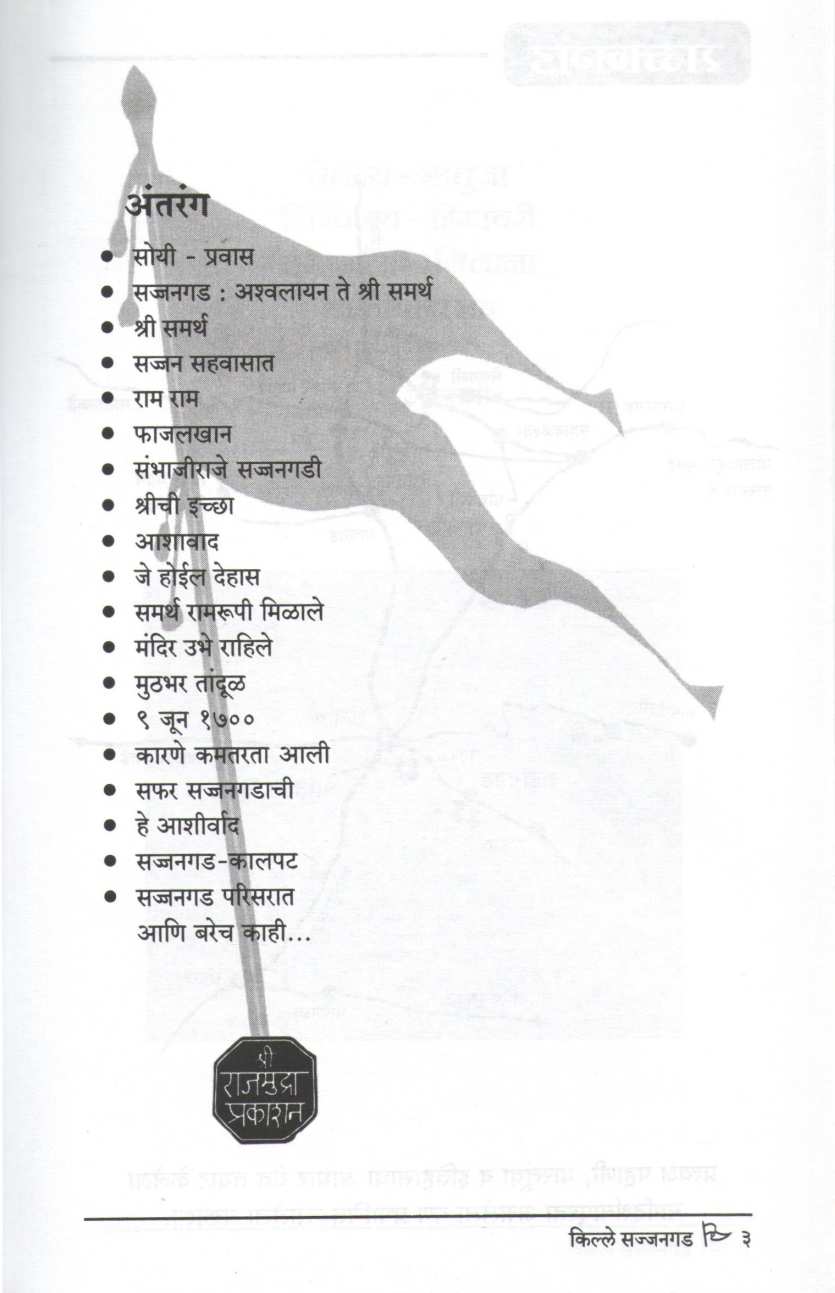 अंतरंग
● सोयी - प्रवास
● सज्जनगड : अश्वलायन ते श्री समर्थ
● श्री समर्थ
● सज्जन सहवासात
● राम राम
● फाजलखान
● संभाजीराजे सज्जनगडी
● श्रीची इच्छा
● आशावाद
● जे होईल देहास
● समर्थ रामरूपी मिळाले
● मंदिर उभे राहिले
● मुठभर तांदूळ
● ९ जून १७००
● कारणे कमतरता आली
● सफर सज्जनगडाची
● हे आशीर्वाद
● सज्जनगड-कालपट
● सज्जनगड परिसरात
आणि बरेच काही...
श्री
राजमुद्रा
प्रकाशन
किल्ले सज्जनगड ३